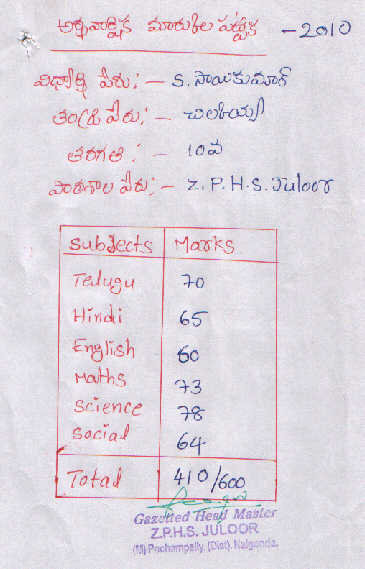 అర్ధవార్షిక మార్కుల పట్టిక - 2010
విద్యార్థి పేరు:- S. సాయికుమార్
తండ్రి పేరు:- చిలకయ్య
తరగతి:- 10వ
పాఠశాల పేరు:- Z.P.H.S. Juloor
Subjects Marks
Telugu 70
Hindi 65
English 60
Maths 73
Science 78
Social 64
Total 410/600
Gazetted Head Master
Z.P.H.S. JULOOR
(M) Pochampally, (Dist). Nalgonda.